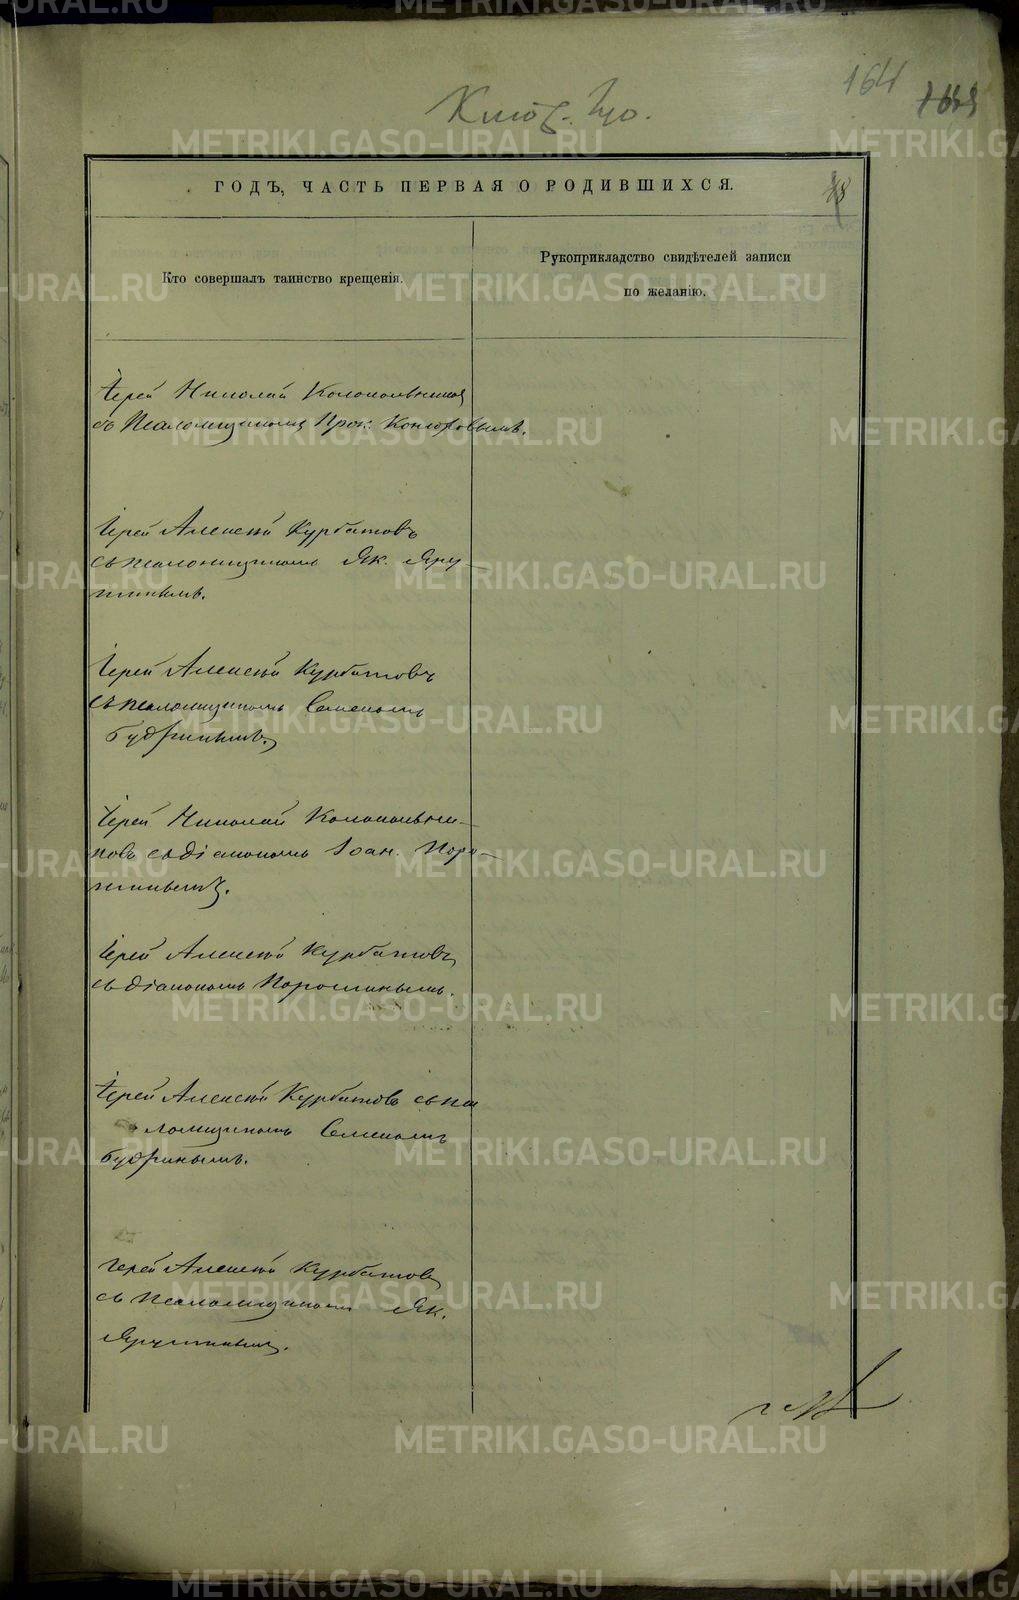 164
ГОДЪ, ЧАСТЬ ПЕРВАЯ О РОДИВШИХСЯ.
Кто совершалъ таинство крещенія.
Рукоприкладство свидѣтелей записи
по желанію.
Іерей Николай Колокольниковъ
съ Псаломщикомъ Прок.
Іерей Алексѣй Курбатовъ
съ псаломщикомъ Як. Яру-
шинымъ.
Іерей Алексѣй Курбатовъ
съ псаломщикомъ Семеномъ
Будринымъ.
Іерей Николай Колокольни-
ковъ съ діакономъ Іоан. Поро-
шинымъ.
Іерей Алексѣй Курбатовъ
съ діакономъ Порошинымъ.
Іерей Алексѣй Курбатовъ съ пса
ломщикомъ Семеномъ
Будринымъ.
Іерей Алексѣй Курбатовъ
съ псаломщикомъ Як.
Ярушинымъ.
METRIKI.GASO-URAL.RU